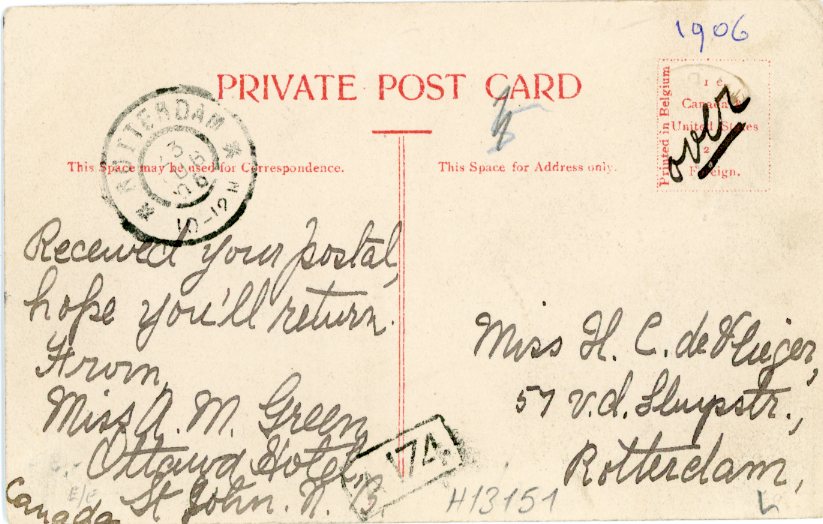 1906
PRIVATE POST CARD
Printed in Belgium
1 c.
Canada
United States
2
Foreign.
over
ROTTERDAM
10-12 V
This Space may be used for Correspondence.
This Space for Address only.
Received your postal,
hope you'll return.
From,
Miss A. M. Green
Ottawa Hotel,
St John. N. B.
Canada
Miss H. C. de Vlieger,
57 v.d. Sluysstr.,
Rotterdam,
174
H13151